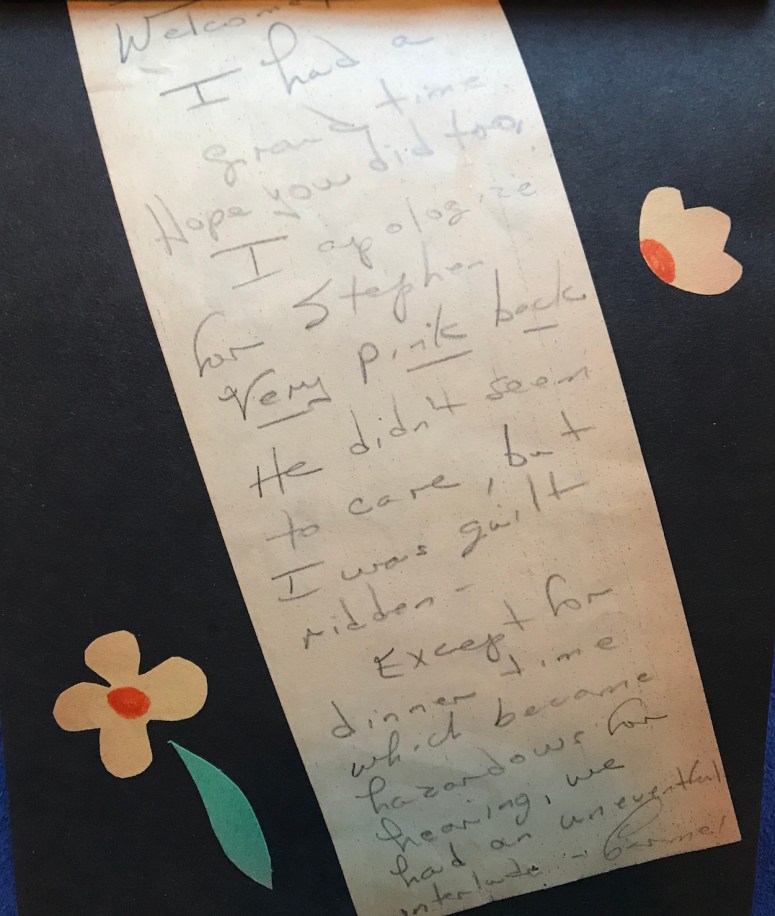 Welcome!
I had a
grand time.
Hope you did too.
I apologize
for Stephen
Very pink back
He didn't seem
to care, but
I was guilt
ridden -
Except for
dinner time
which became
hazardows for
hearing, we
had an uneventful
interlude -